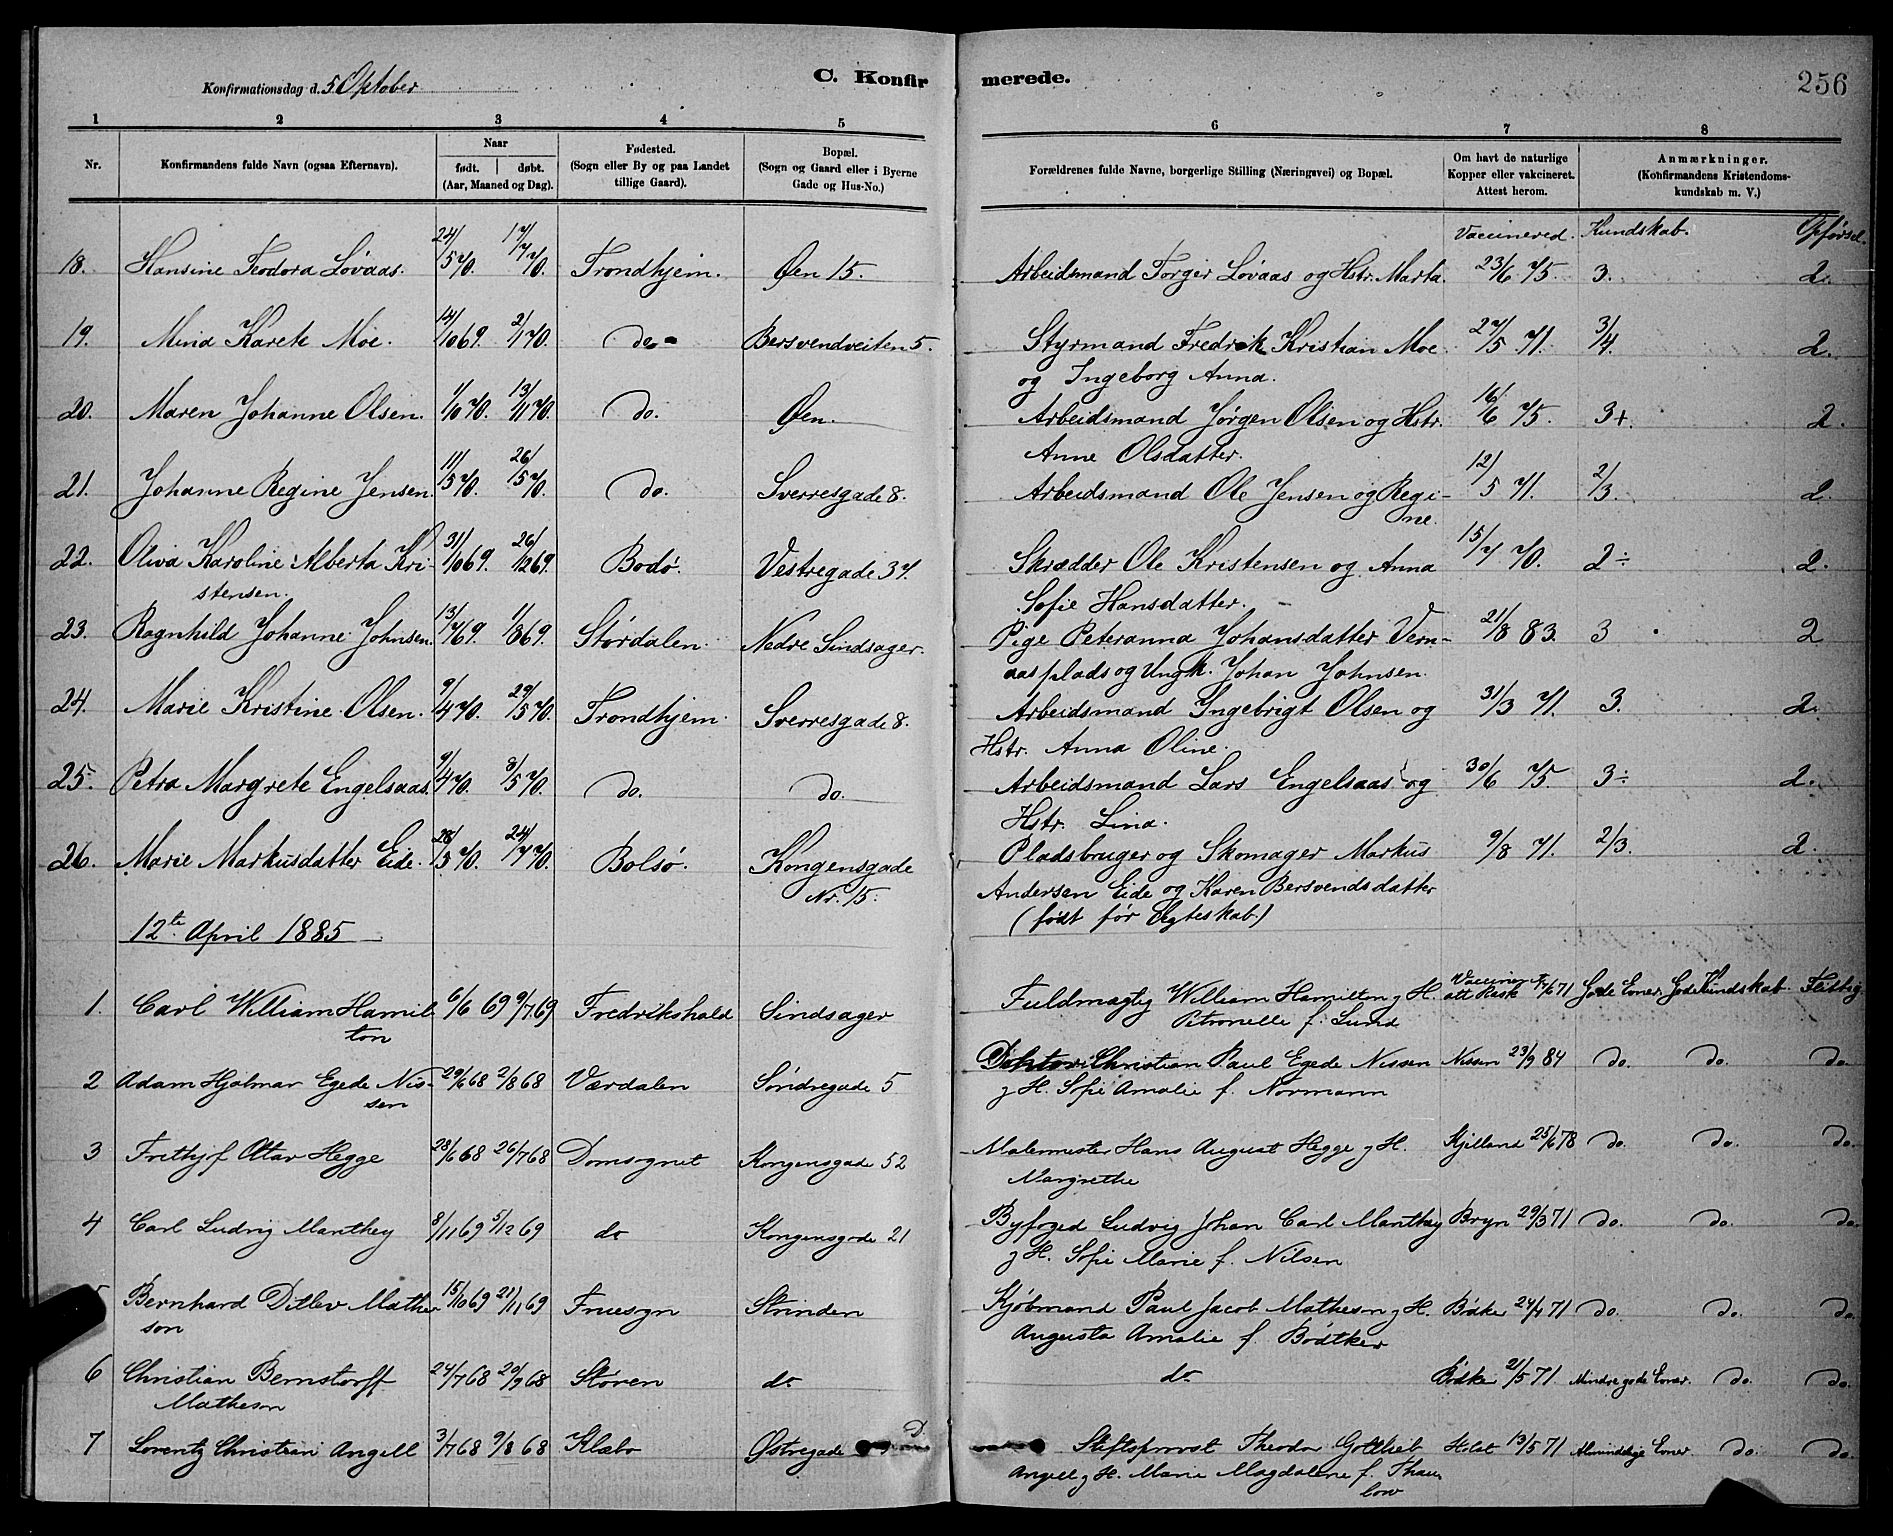 Konfirmationsdag d. 5 Oktober
C. Konfirmerede.
256
1 2 3 4 5 6 7 8
Nr. Konfirmandens fulde Navn (ogsaa Efternavn). Naar født. døbt. (Aar, Maaned og Dag). Fødested. (Sogn eller By og paa Landet tillige Gaard). Bopæl. (Sogn og Gaard eller i Byerne Gade og Hus-No.) Forældrenes fulde Navne, borgerlige Stilling (Næringsvei) og Bopæl. Om havt de naturlige Kopper eller vakcineret. Attest herom. Anmærkninger. (Konfirmandens Kristendomskundskab m. V.)
Vaccinered. Kundskab. Opførsel.
18. Hansine Teodora Løvaas. 24/5 70. 17/7 70. Trondhjem. Øen 15. Arbeidsmand Torger Løvaas og Hstr. Marta. 23/6 75. 3. 2.
19. Mina Karete Moe. 14/10 69. 2/1 70. do. Bersvendveiten 5. Styrmand Fredrik Kristian Moe 27/5 71. 3/4. 2.
og Ingeborg Anna.
20. Maren Johanne Olsen. 1/10 70. 13/11 70. do. Øen. Arbeidsmand Jørgen Olsen og Hstr. 16/6 75. 3+. 2.
Anne Olsdatter.
21. Johanne Regine Jensen. 11/5 70. 26/5 70. do. Sverresgade 8. Arbeidsmand Ole Jensen og Regi- 12/5 71. 2/3. 2.
ne.
22. Oliva Karoline Alberta Kri- 31/10 69. 26/12 69. Bodø. Vestregade 37. Skrædder Ole Kristensen og Anna 15/7 70. 2÷ 2.
stensen. Sofie Hansdatter.
23. Ragnhild Johanne Johnsen. 13/7 69. 1/8 69. Størdalen. Nedre Sindsager. Pige Peteranna Johansdatter Vern- 21/8 83. 3 2
aasplads og Ungk. Johan Johnsen.
24. Marie Kristine Olsen. 9/4 70. 29/5 70. Trondhjem. Sverresgade 8. Arbeidsmand Ingebrigt Olsen og 31/3 71. 3. 2.
Hstr. Anna Oline.
25. Petra Margrete Engelsaas. 9/4 70. 8/5 70. do. do. Arbeidsmand Lars Engelsaas og 30/6 75. 3÷ 2.
Hstr. Lina.
26. Marie Markusdatter Eide. 28/5 70. 24/7 70. Bolsø. Kongensgade Pladsbruger og Skomager Markus 9/8 71. 2/3. 2.
Nr. 15. Andersen Eide og Karen Bersvendsdatter
12te April 1885 (født før Egteskab)
1. Carl William Hamil 6/6 69 9/7 69 Fredrikshald Sindsager Fuldmægtig William Hamilton og H. att Gode Evner Gode Kundskab Flittig
ton Petronelle f. Lund
2 Adam Hjalmar Egede Nis- 29/6 68 2/8 68 Værdalen Søndregade 5 Doktor Christian Paul Egede Nissen Nissen 23/9 84 do. do. do
sen og H. Sofie Amalie f. Normann
3 Frithjof Ottar Hegge 28/6 68 26/7 68 Domsognet Kongensgade 52 Malermester Hans August Hegge og H. Kjelland 25/6 78 do. do. do.
Margrethe
4 Carl Ludvig Manthey 8/11 69 5/12 69 do Kongensgade 21 Byfoged Ludvig Johan Carl Manthey Bryn 29/3 71 do. do. do.
og H. Sofie Marie f. Nilsen
5 Bernhard Ditlev Mathe 15/10 69 21/11 69 Fruesogn Strinden Kjøbmand Paul Jacob Matheson og H. Bødker 24/4 71 do. do. do.
son Augusta Amalie f. Bødtker
6 Christian Bernstorff 24/7 68 20/9 68 Støren do do Bødker 21/5 71. Mindre gode Evner. do. do.
Matheson
7 Lorentz Christian Angell 3/7 68 9/8 68 Klæbo Østregade Stiftsprovst Theodor Gottlieb 13/5 71 Almindelige Evner do. do.
Angell og H. Marie Magdalene f. Thau
low